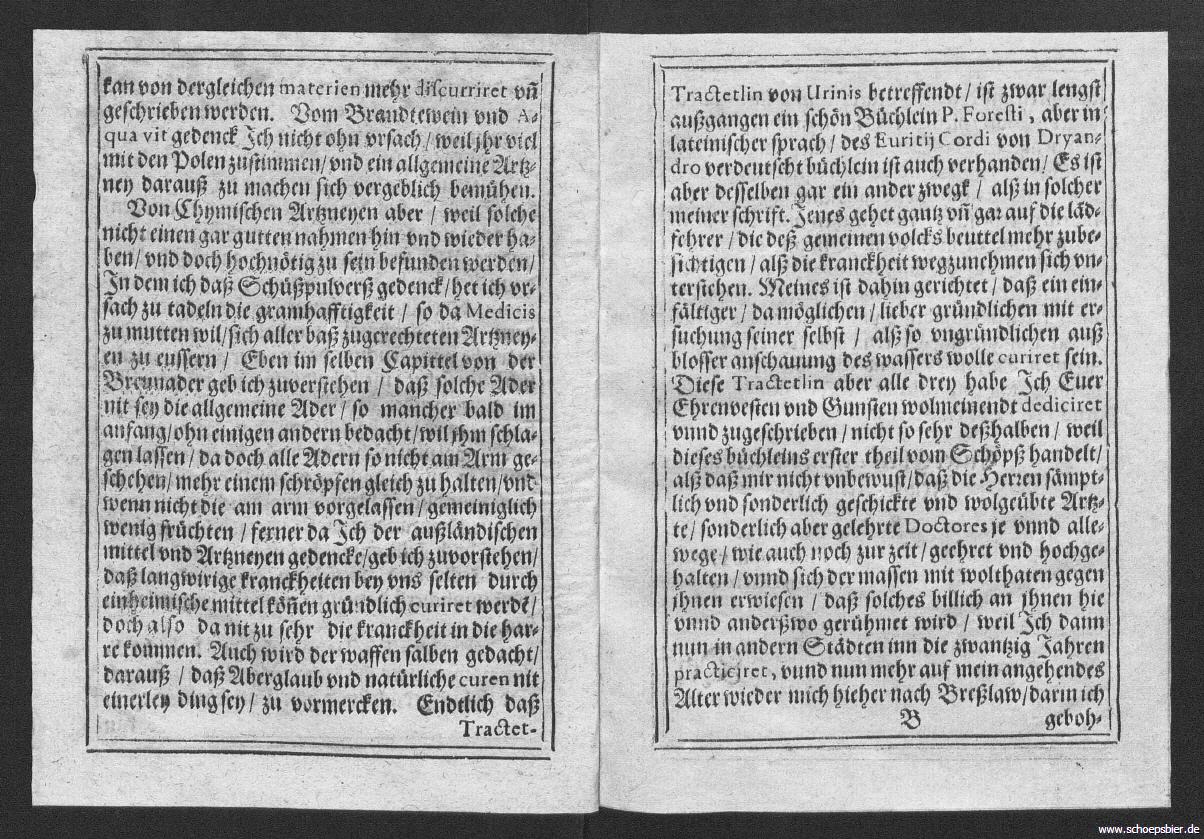 kan von dergleichen materien mehr discurriret vñ
geschrieben werden. Vom Brandtewein vnd A-
qua vit gedenck Ich nicht ohn vrsach / weil jhr viel
mit den Polen zustimmen / vnd ein allgemeine Artz-
ney darauß zu machen sich vergeblich bemühen.
Von Chymischen Artzneyen aber / weil solche
nicht einen gar gutten nahmen hin vnd wieder ha-
ben / vnd doch hochnötig zu sein befunden werden /
In dem ich daß Schüßpulverß gedenck / het ich vr-
sach zu tadeln die gramhafftigkeit / so da Medicis
zu mutten wil / sich aller baß zugerechteten Artzney-
en zu eussern / Eben im selben Capittel von der
Breunader geb ich zuverstehen / daß solche Ader
nit sey die allgemeine Ader / so mancher bald im
anfang / ohn einigen andern bedacht / wil jhm schla-
gen lassen / da doch alle Adern so nicht am Arm ge-
schehen / mehr einem schröpfen gleich zu halten / vnd
wenn nicht die am arm vorgelassen / gemeiniglich
wenig früchten / ferner da Ich der außländischen
mittel vnd Artzneyen gedencke / geb ich zuvorstehen /
daß langwirige kranckheiten bey vns selten durch
einheimische mittel köñen gründlich curiret werdẽ /
doch also da nit zu sehr die kranckheit in die har-
re kommen. Auch wird der waffen salben gedacht /
darauß / daß Aberglaub vnd natürliche curen nit
einerley ding sey / zu vormercken. Endtlich daß
Tractet-
Tractetlin von Urinis betreffendt / ist zwar lengst
außgangen ein schön Büchlein P. Foresti, aber in
lateinischer sprach / des Euritij Cordi von Dryan-
dro verdeutscht büchlein ist auch verhanden / Es ist
aber desselben gar ein ander zwegk / alß in solcher
meiner schrift. Jenes gehet gantz vñ gar auf die lãd-
fehrer / die deß gemeinen volcks beuttel mehr zube-
sichtigen / alß die kranckheit wegzunehmen sich vn-
terstehen. Meines ist dahin gerichtet / daß ein ein-
fältiger / da möglichen / lieber gründlichen mit er-
suchung seiner selbst / alß so vngründlichen auß
blosser anschauung des wassers wolle curiret sein.
Diese Tractetlin aber alle drey habe Ich Euer
Ehrenvesten vnd Gunsten wolmeinendt dediciret
vnnd zugeschrieben / nicht so sehr deßhalben / weil
dieses büchleins erster theil vom Schöpß handelt /
alß daß mir nicht vnbewust / daß die Herren sämpt-
lich vnd sonderlich geschickte vnd wolgeübte Artz-
te / sonderlich aber gelehrte Doctores je vnnd alle-
wege / wie auch noch zur zeit / geehret vnd hochge-
halten / vnnd sich der massen mit wolthaten gegen
jhnen erwiesen / daß solches billich an jhnen hie
vnnd anderßwo gerühmet wird / weil Ich dann
nun in andern Städten inn die zwantzig Jahren
practiciret, vnnd nun mehr auf mein angehendes
Alter wieder mich hieher nach Breßlaw / darin ich
B geboh-
www.schoepsbier.de